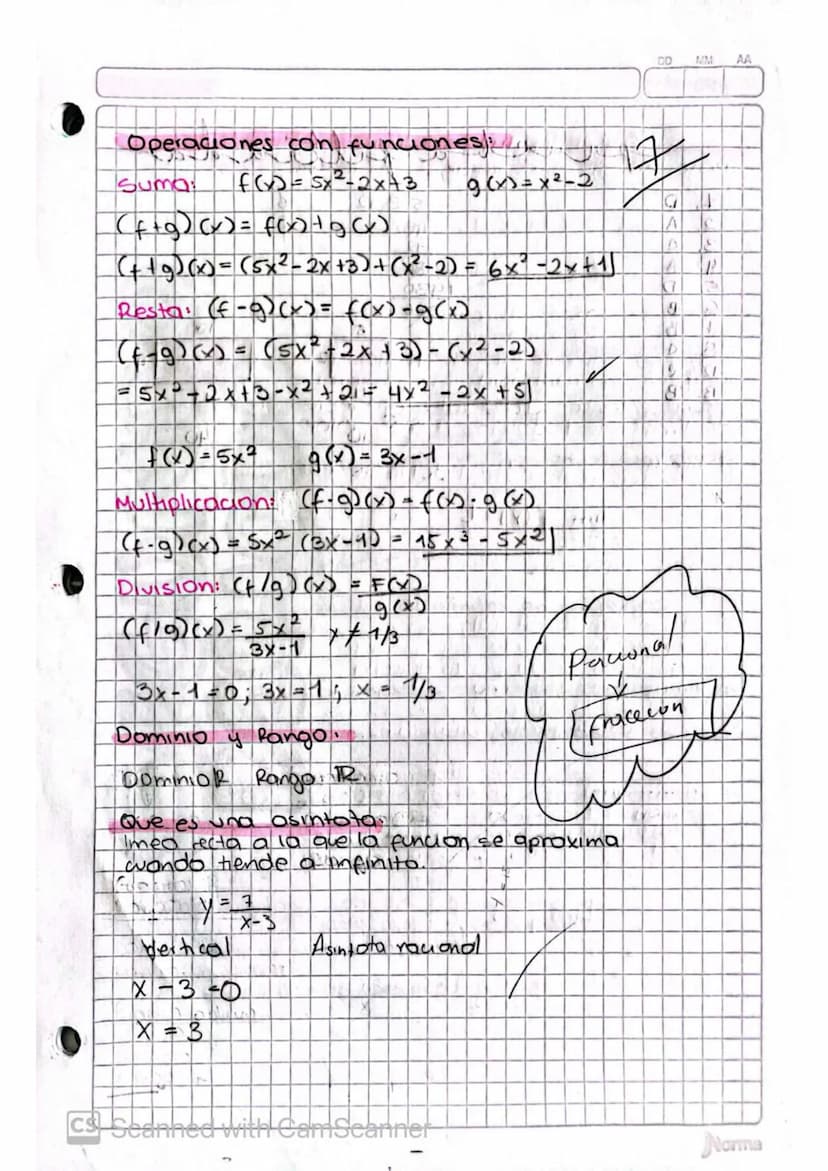 DD MM AA
Operaciones con funciones:
17
Suma: f(x)= 5x²-2x+3 g(x)= x²-2
(f+g)(x)= f(x)+g(x)
(f+g)(x)= (5x²-2x+3)+(x²-2) = 6x²-2x+1
Resta: (f-g)(x)= f(x)-g(x)
(f-g)(x) = (5x²-2x+3)-(x²-2)
= 5x²-2x+3-x²+2 = 4x²-2x+5
f(x)=5x² g(x)= 3x-1
Multiplicacion: (f·g)(x) = f(x)·g(x)
(f·g)(x) = 5x² (3x-1) = 15x³-5x²
Division: (f/g)(x) = F(x)/g(x)
(f/g)(x) = 5x²/3x-1 x≠1/3
3x-1=0; 3x=1; x = 1/3
Racional
↓
fraccecion
Dominio y Rango:
Dominio R Rango: R
Que es una asintota:
linea recta a la que la funcion se aproxima
cuando tiende a infinito.
y = 7/x-3
Vertical Asintota racional
x - 3 =0
x = 3
CS Scanned with CamScanner
Norma